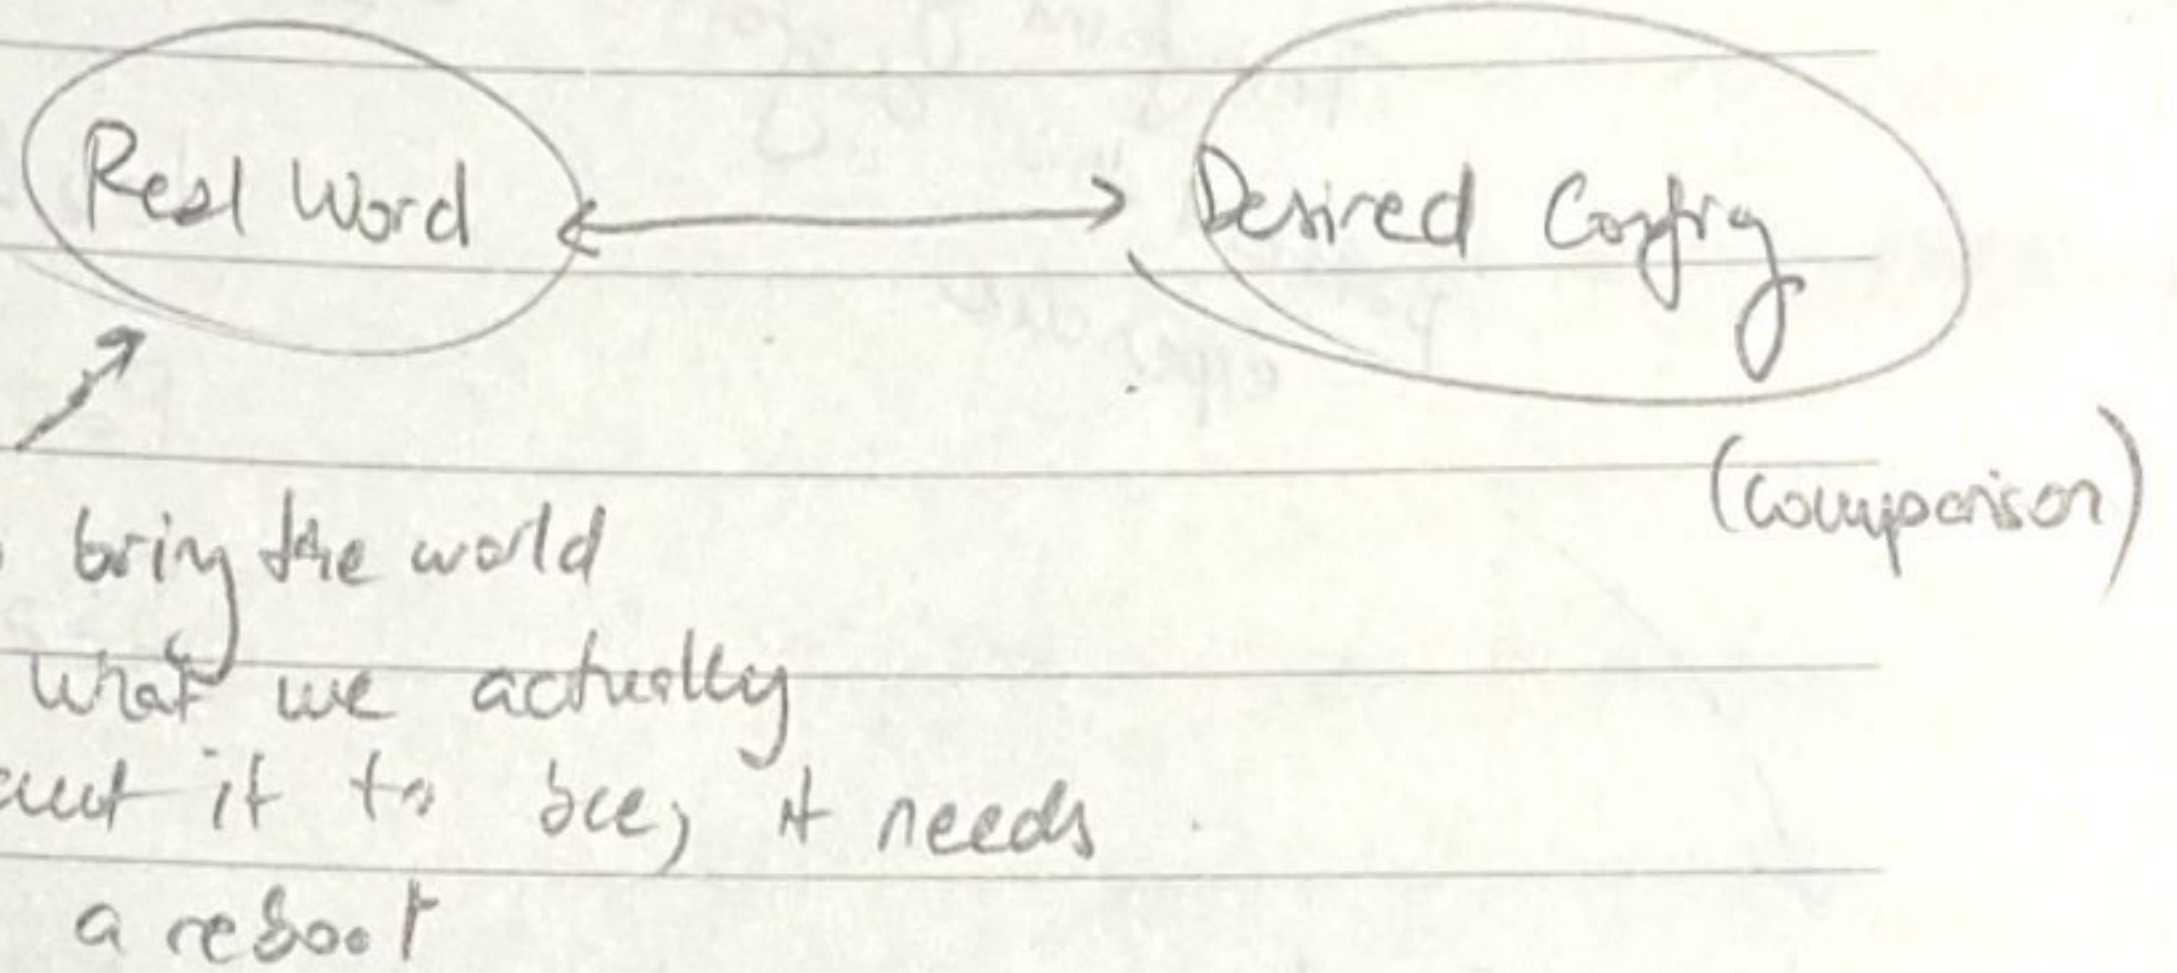 Real Word Desired Config
(comparison)
bring the world
what we actually
want it to bee, it needs
a reboot